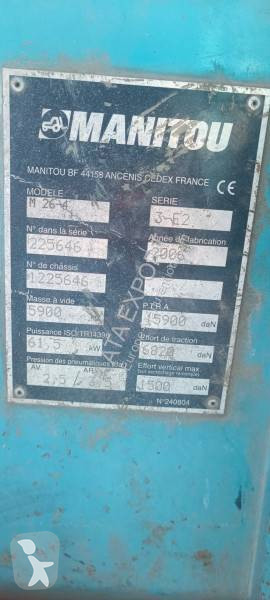 MANITOU
MANITOU BF 44158 ANCENIS CEDEX FRANCE CE
MODELE SERIE
M 26-4 3-E2
N° dans la série Année de fabrication
225646 2006
N° de châssis
1225646
Masse à vide P.T.R.A
5900 15900 daN
Puissance ISO/TR14396 Effort de traction
61,5 kW 6820 daN
Pression des pneumatiques (bar) Effort vertical max
AV AR daN
2,5 / 3,5 1500
N°240804
ATA EXPORT